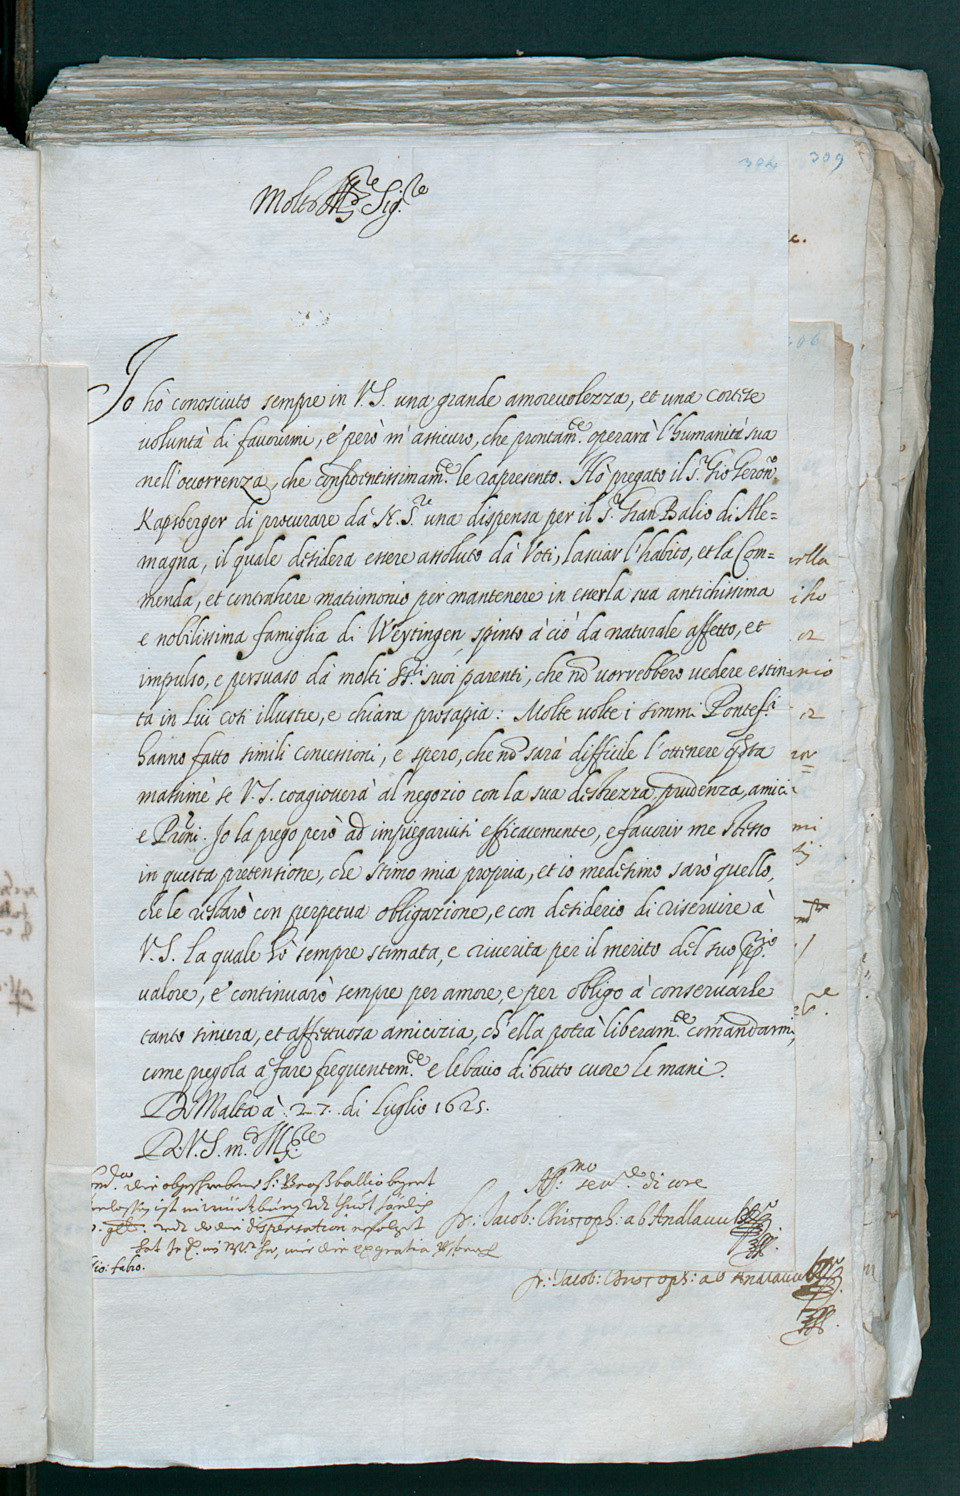 302 309
Molto Ill.re Sig.re
Io hò conosciuto sempre in V.S. una grande amorevolezza, et una cortese
voluntà di favorirmi, e però m'assicuro, che prontam.te operarà l'humanità sua
nell'occorrenza, che confidentissimam.te le rapresento. Hò pregato il s.r Gio Geron.o
Kapsberger di procurare dà N. S.re una dispensa per il s.r Gran Balio di Ale=
magna, il quale desidera essere assoluto dà Voti, lasciar l'habito, et la Com=
menda, et contrahere matrimonio per mantenere in esser la sua antichissima
e nobilissima famiglia di Weytingen spinto à ciò da naturale affetto, et
impulso, e persuaso dà molti suoi parenti, che nõ vorrebbero vedere estin
ta in Lui così illustre, e chiara prosapia: Molte volte i sommi Pontef.i
hanno fatto simili concessioni, e spero, che nõ sarà difficile l'ottenere q.sta
massime se V.S. coagiovera al negozio con la sua destrezza, prudenza, amici
e Pr̃oni. Io la prego però ad impiegarvisi efficacemente, e favorir me stesso
in questa pretensione, che stimo mia propria, et io medesimo sarò quello,
che le restarò con perpetua obligazione, e con desiderio di riservire à
V.S. la quale hò sempre stimata, e riverita per il merito del suo pp.rio
valore, e continuarò sempre per amore, e per obligo à conservarle
tanto sincera, et affettuosa amicizia, ch'ella potrà liberam.te comandarmi,
come pregola à fare frequentem.te e le bacio di tutto cuore le mani.
Di Malta à 27. di Luglio 1625.
D. V. S. m.to Ill.re
Aff.mo ser.re di core
fr: Jacob: Christoph: ab Andlauw
dispensation
ex gratia
fr: Jacob: Christoph: ab Andlauw